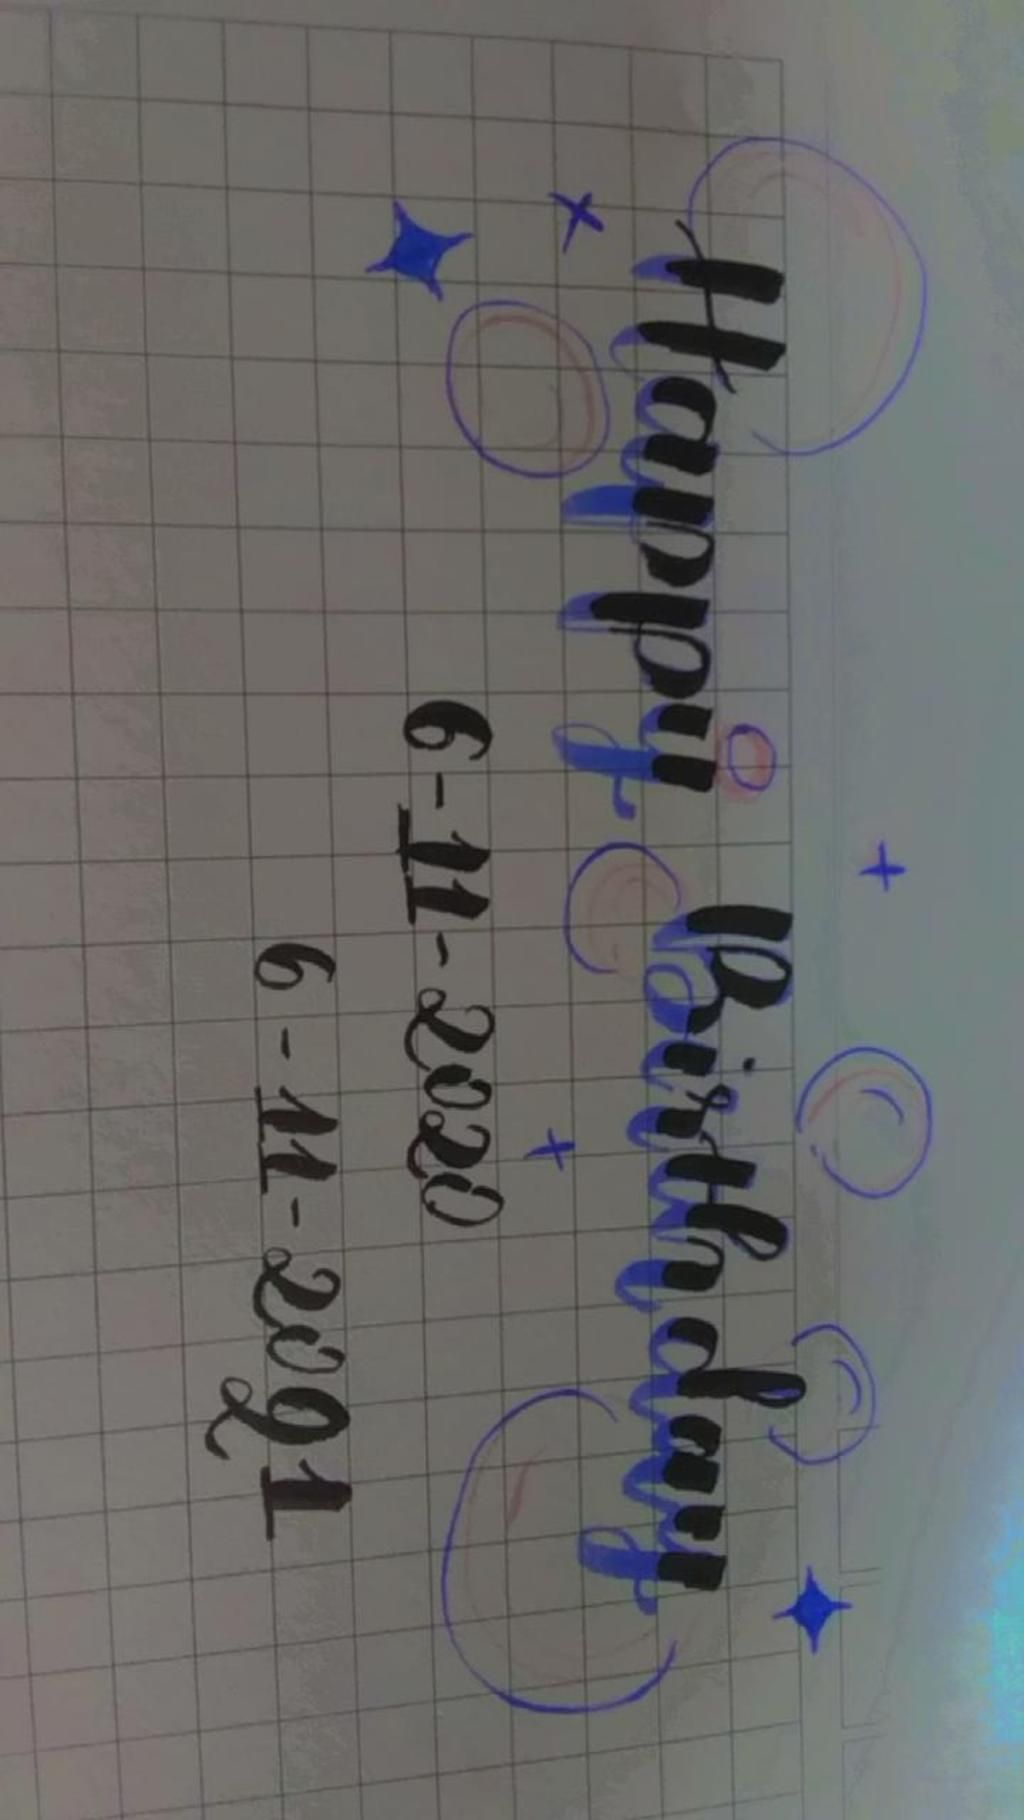 Happy Birthday
6-11-2020
6-11-2021